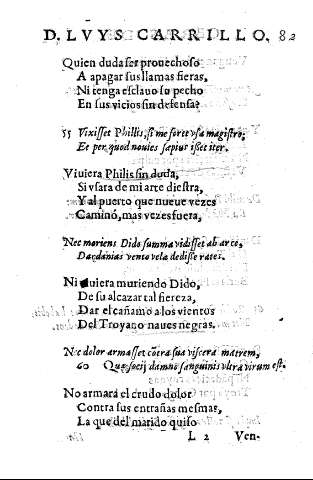 D. LVYS CARRILLO. 82
Quien duda ser prouechoso
A apagar sus llamas fieras,
Ni tenga esclauo su pecho
En sus vicios sin defensa?
55 Vixisset Phillis, si me foret vsa magistro,
Et per quod nouies sæpius isset iter.
Viuiera Philis sin duda,
Si vsara de mi arte diestra,
Y al puerto que nueue vezes
Caminó, mas vezes fuera,
Nec moriens Dido summa vidisset ab arce,
Dardanias vento vela dedisse rates.
Ni viera muriendo Dido,
De su alcazar tal fiereza,
Dar el cañamo a los vientos
Del Troyano naues negras.
Nec dolor armasset cõtra sua viscera matrem,
60 Quæ socij damno sanguinis vltra virum est.
No armará el crudo dolor
Contra sus entrañas mesmas,
La que del marido quiso
L 2 Ven-